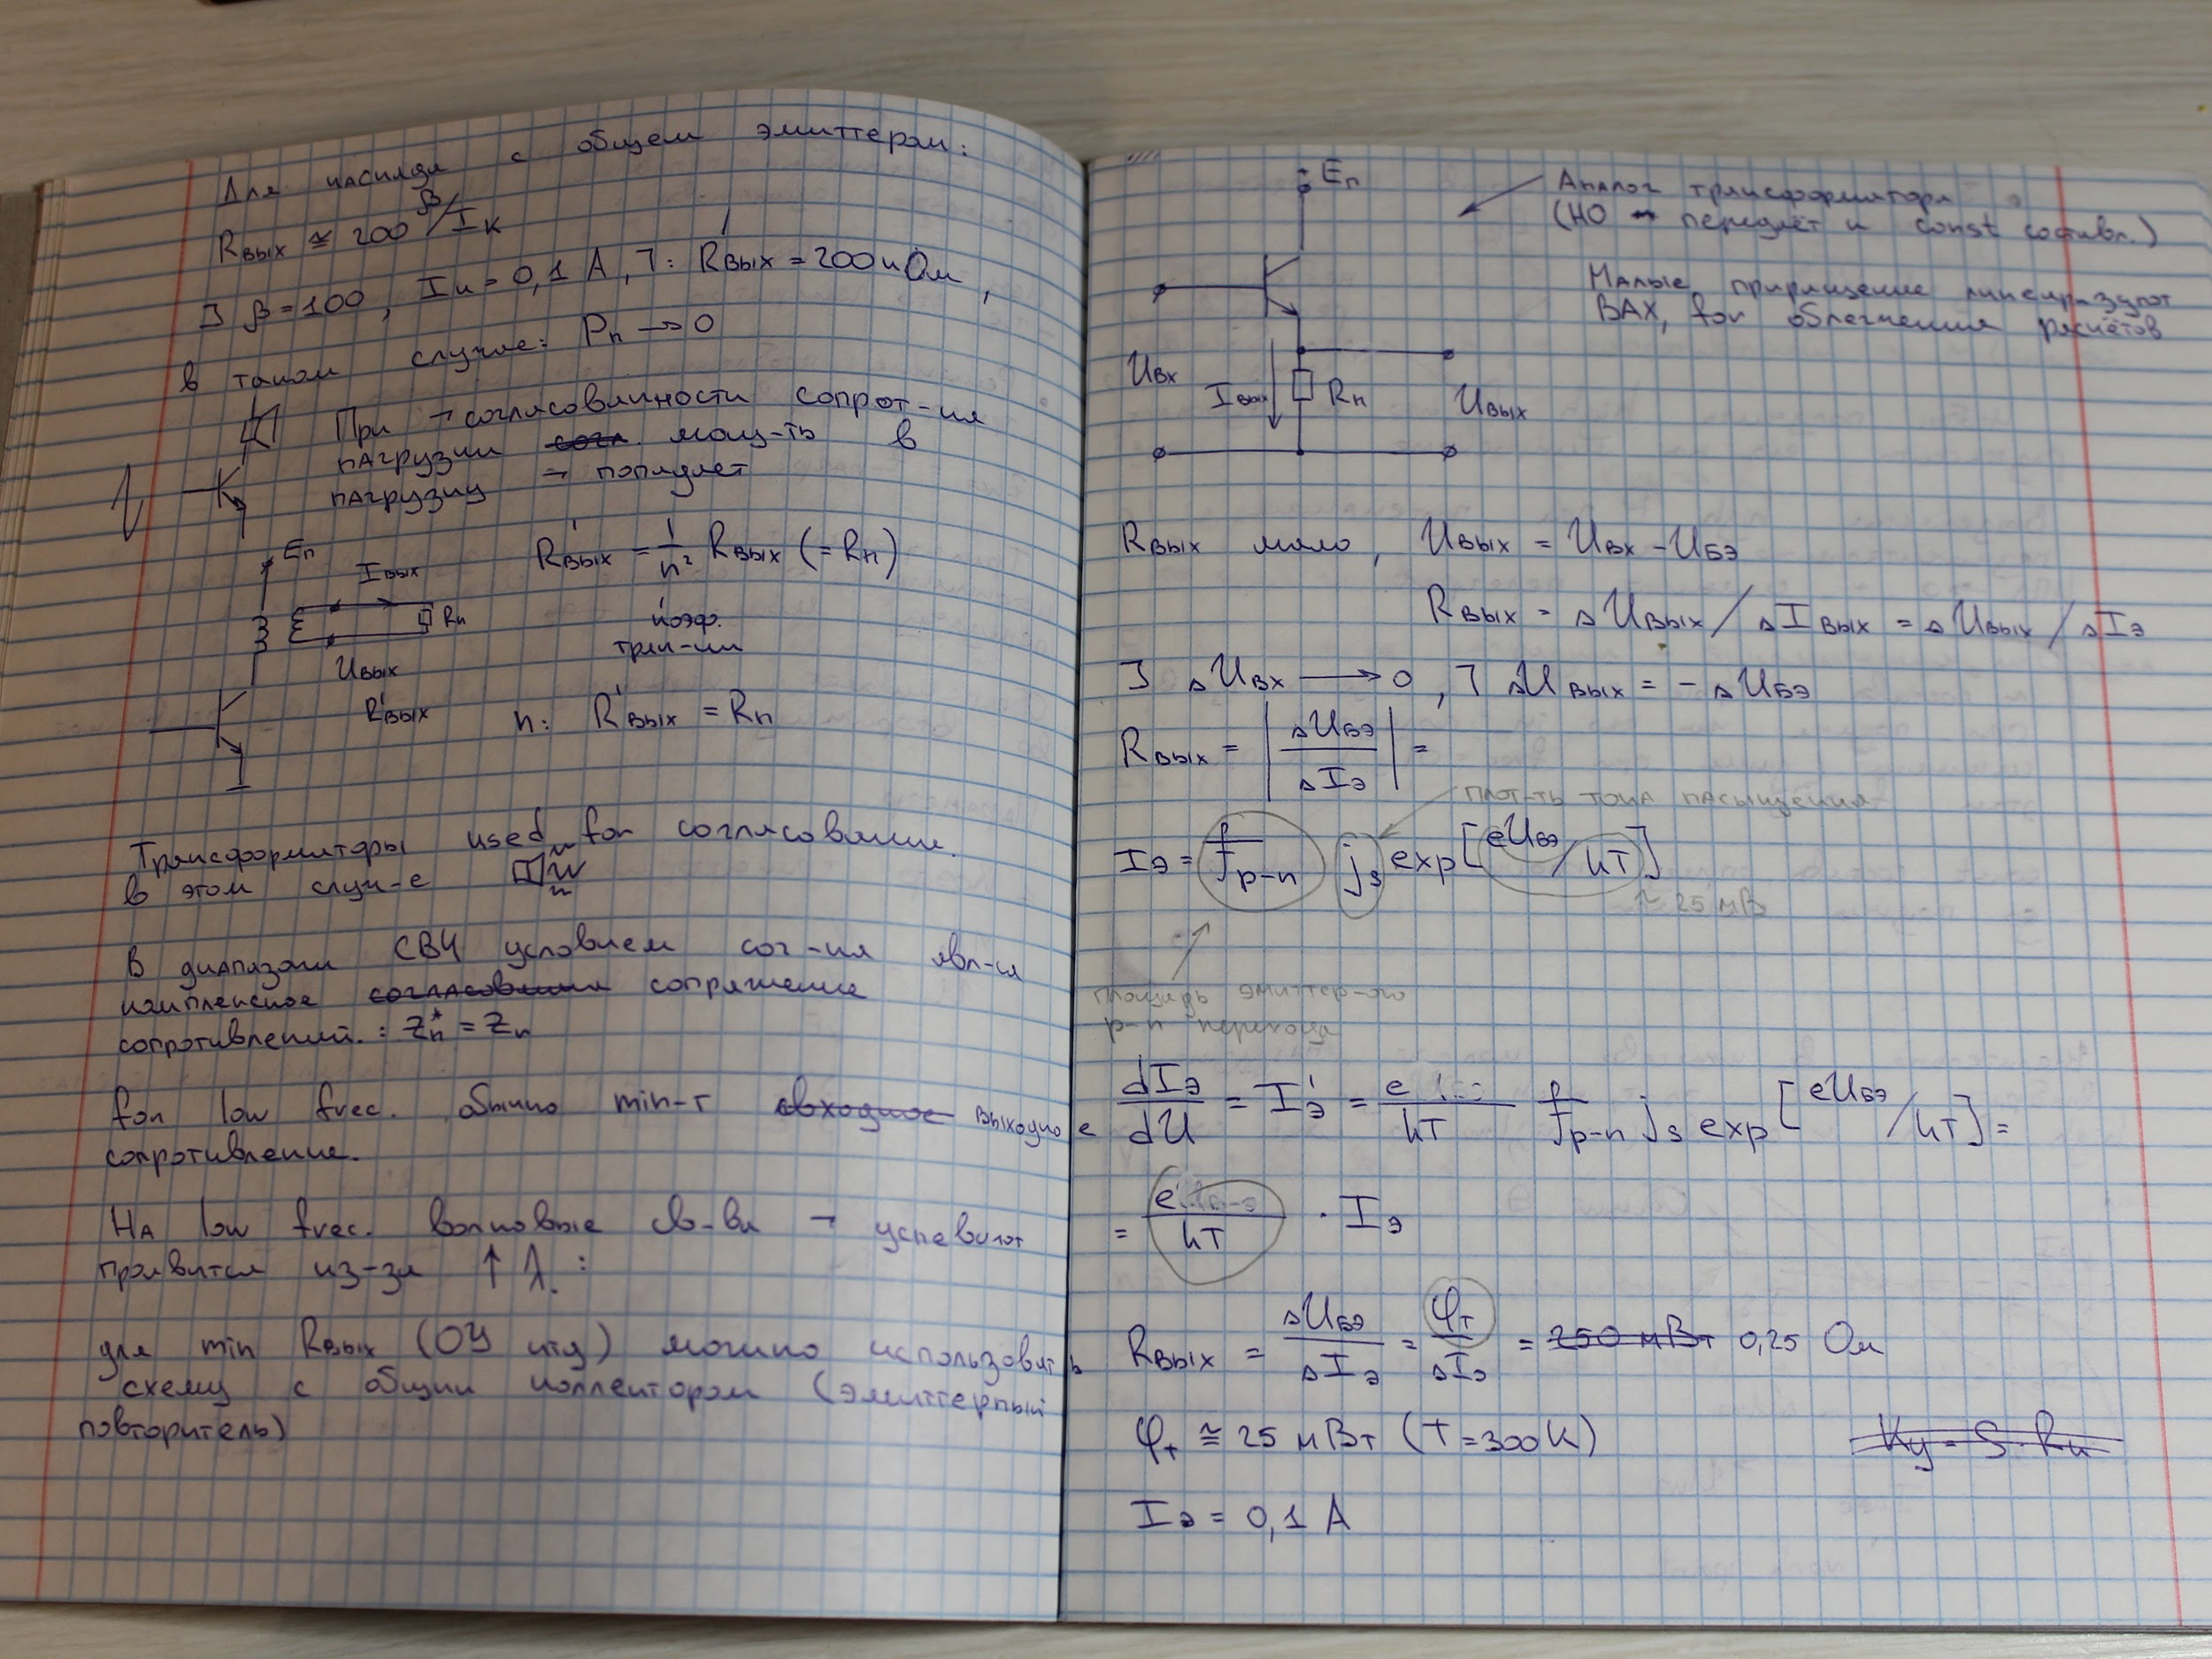 Для каскада с общем эмиттером:
Rвых ≅ 200 β/Iк
Ӡ β = 100, Iк = 0,1 А, ⅂: Rвых = 200 кОм,
в таком случае: Pн → 0
При ¬ согласованности сопрот-ия
нагрузки согл. мощ-ть в
нагрузку ¬ попадает
Eп
Iвых
Rн
Uвых
R'вых
R'вых = 1/n² Rвых (= Rн)
коэф.
тран-ии
n: R'вых = Rн
Трансформаторы used for согласование
в этом случ-е
В диапазоне СВЧ условием сог-ия явл-ся
комплексное согласование сопряжение
сопротивлений. : Zп* = Zн
for low frec. обычно min-т входное выходное
сопротивление.
На low frec. волновые св-ва ¬ успевают
проявится из-за ↑ λ.
для min Rвых (ОУ итд) можно использовать
схему с общим коллектором (эмиттерный
повторитель)
Eп
Аналог трансформатора
(НО передаёт и const составл.)
Малые приращение линеаризуют
ВАХ, for облегчения расчётов
Uвх
Iвых
Rн
Uвых
Rвых мало, Uвых = Uвх - Uбэ
Rвых = ΔUвых / ΔIвых = ΔUвых / ΔIэ
Ӡ ΔUвх → 0, ⅂ ΔUвых = - ΔUбэ
Rвых = |ΔUбэ / ΔIэ| =
плот-ть тока насыщения
Iэ = fp-n js exp[eUбэ/kT]
≈ 25 мВ
площадь эмиттер-ого
p-n перехода
dIэ/dU = I'э = e/kT fp-n js exp[eUбэ/kT] =
= e/kT · Iэ
Rвых = ΔUбэ/ΔIэ = φт/ΔIэ = 250 мВт 0,25 Ом
φт ≅ 25 мВт (T = 300K)
Kу = S · Rн
Iэ = 0,1 А